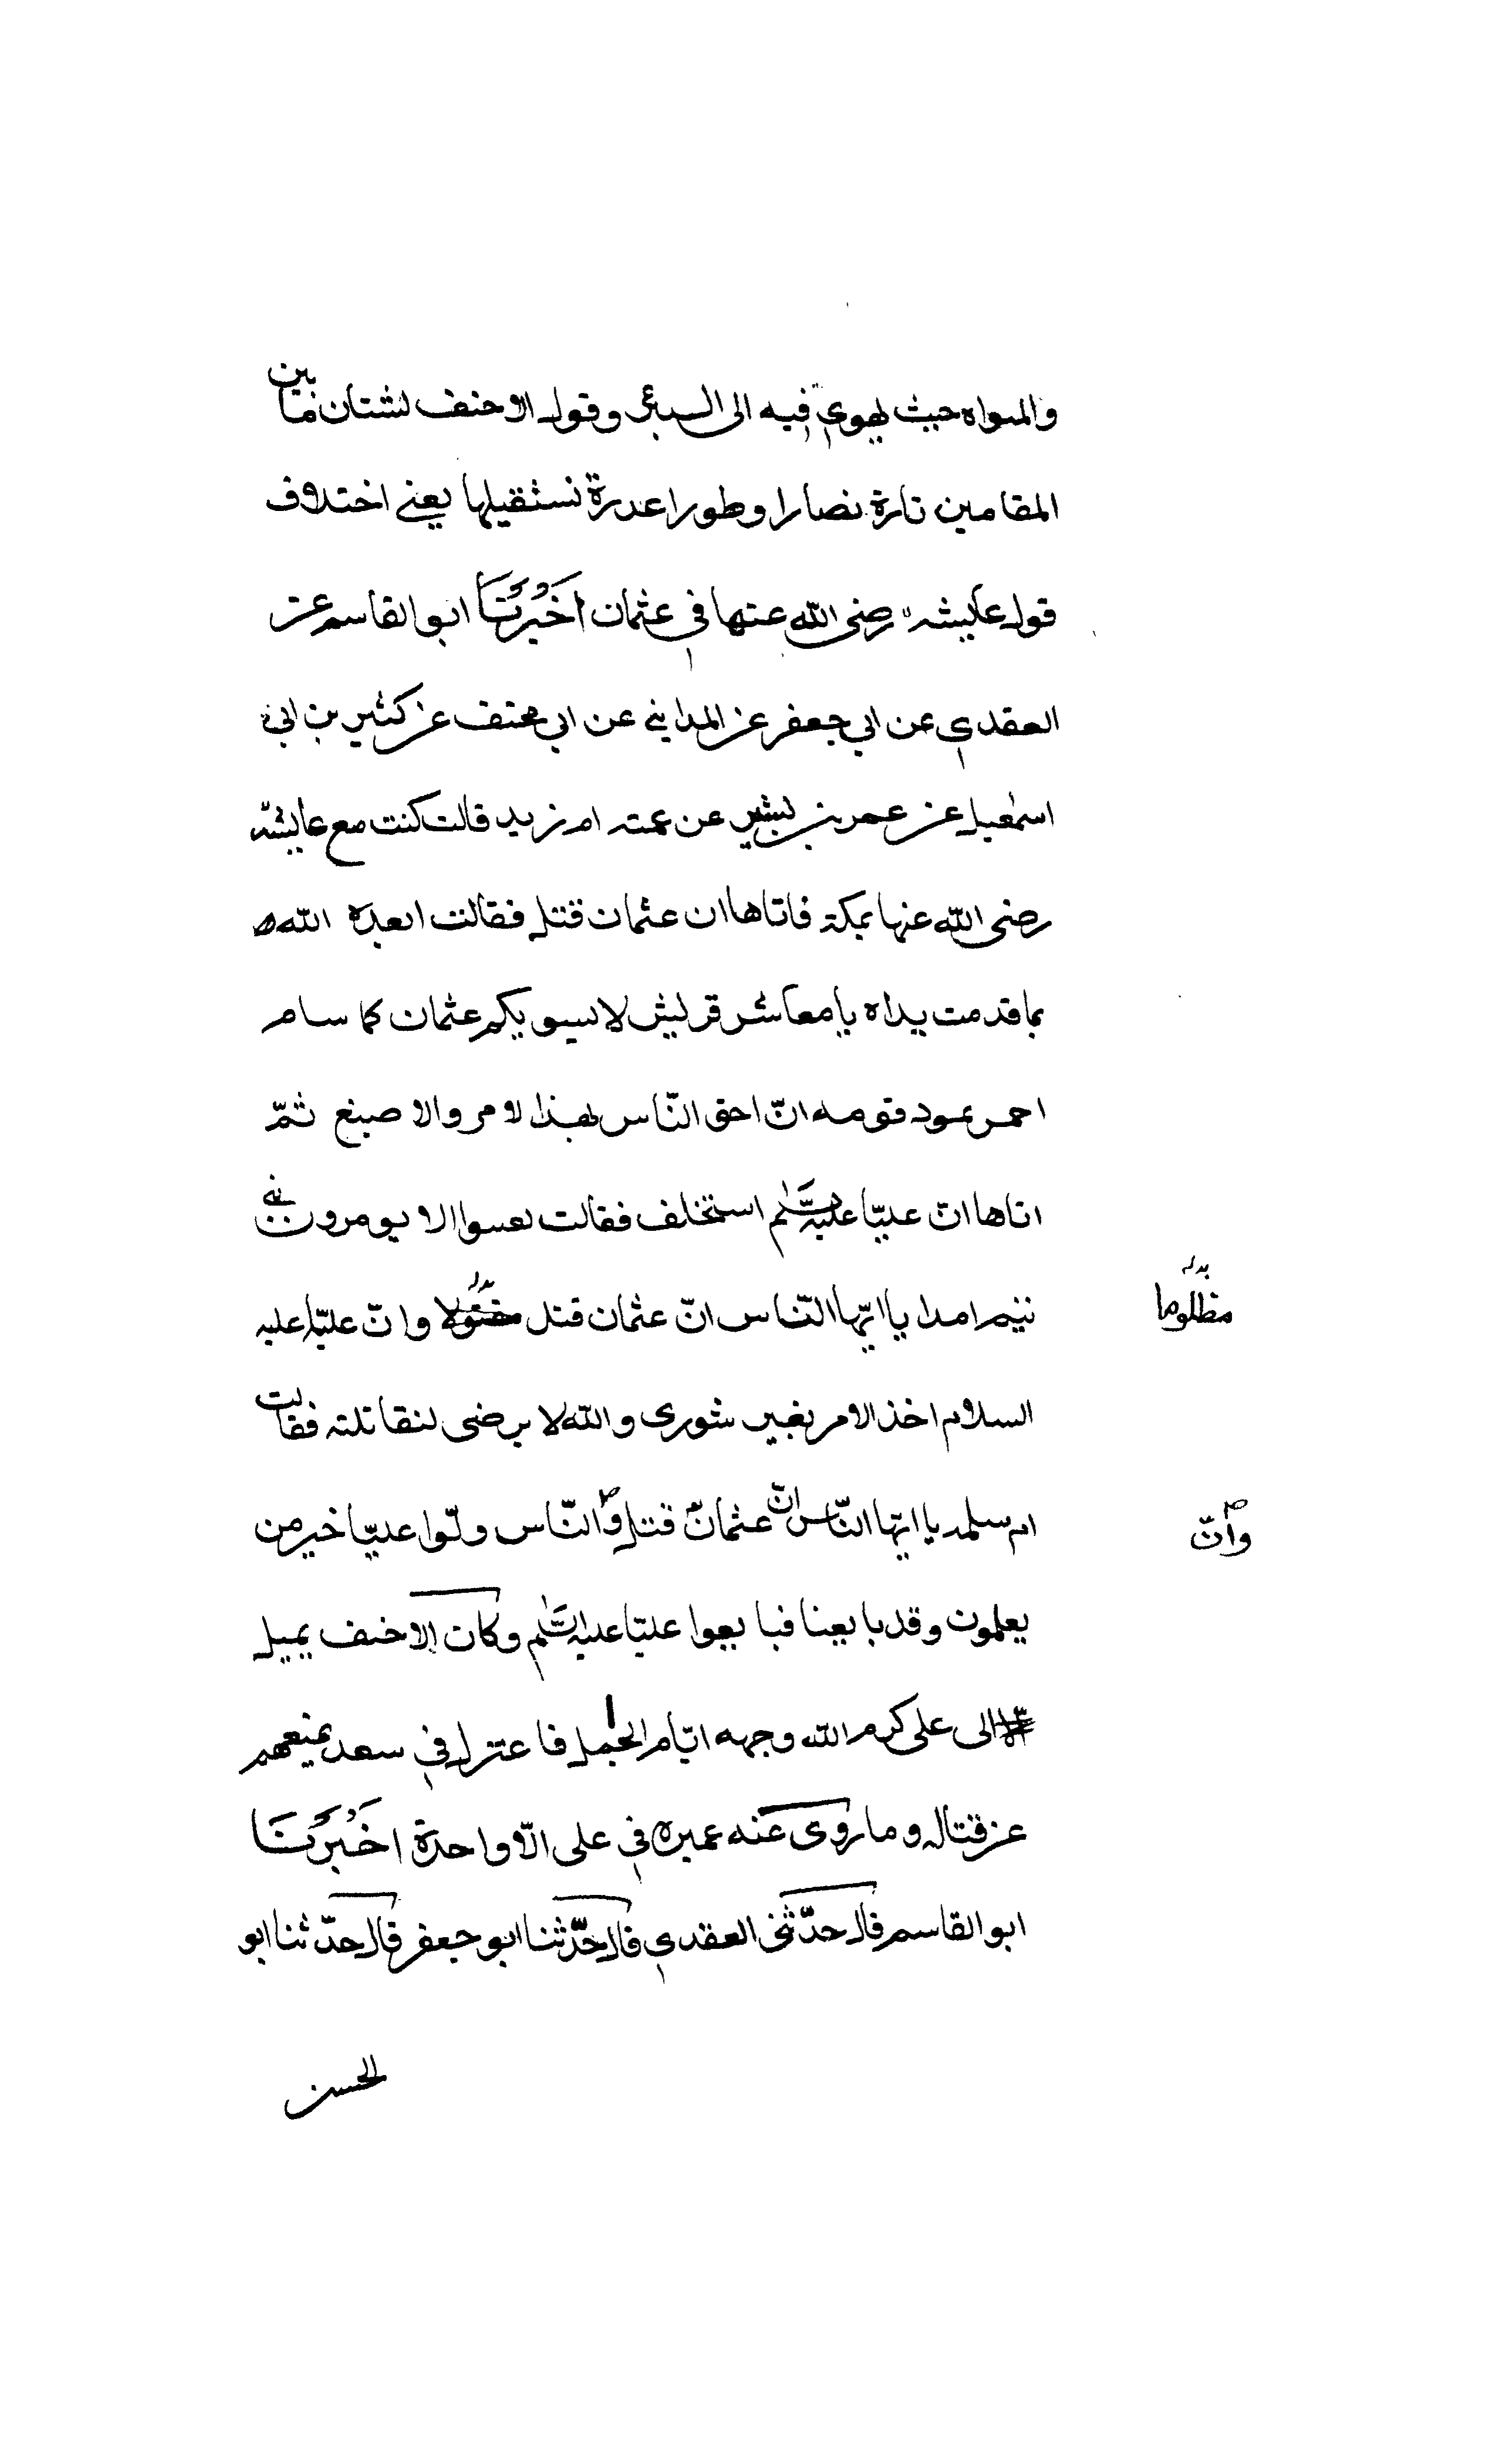 والمهواه حيث يهوى فيه الى السى وقول الاحنف لشتان ما بين
المقامين تارة نصارا وطورا عدرة نستقيلها يعني اختلاف
قول عايشه رضى الله عنها في عثمان اخبرنا ابو القاسم عن
العقدي عن ابي جعفر عن المدايني عن ابي مخنف عن كثير بن ابي
اسمعيل عن عمر بن بشير عن عمته ام زيد قالت كنت مع عايشه
رضى الله عنها بمكة فاتاها ان عثمان قتل فقالت ابعده الله
بما قدمت يداه يا معاشر قريش لا يسوبكم عثمان كما سام
احمر ثمود قومه ان احق الناس بهذا لامر والاصبع ثمّ
اتاها انّ عليّا عليه السّلم استخلف فقالت تعسوا لا يومرون في
تيم ابدا يا ايّها النّاس انّ عثمان قتل مقتولا وانّ عليّا عليه
مظلوما
السلام اخذ الامر بغير شورى والله لا يرضى لنقاتلته فقالت
ام سلمه يا ايّها النّاس انّ عثمان قتل والنّاس ولّوا عليّا خير من
وانّ
يعلمون وقد بايعنا فبايعوا عليّا عليه السّلم وكان الاحنف يميل
الى على كرم الله وجهه ايّام الجمل فاعتزل في سعد يمنعهم
عن قتاله وما روى عنه عميره في على الّا واحدة اخبرنا
ابو القاسم قال حدّثنى العقدي قال حدّثنا ابو جعفر قال حدّثنا ابو
الحسن